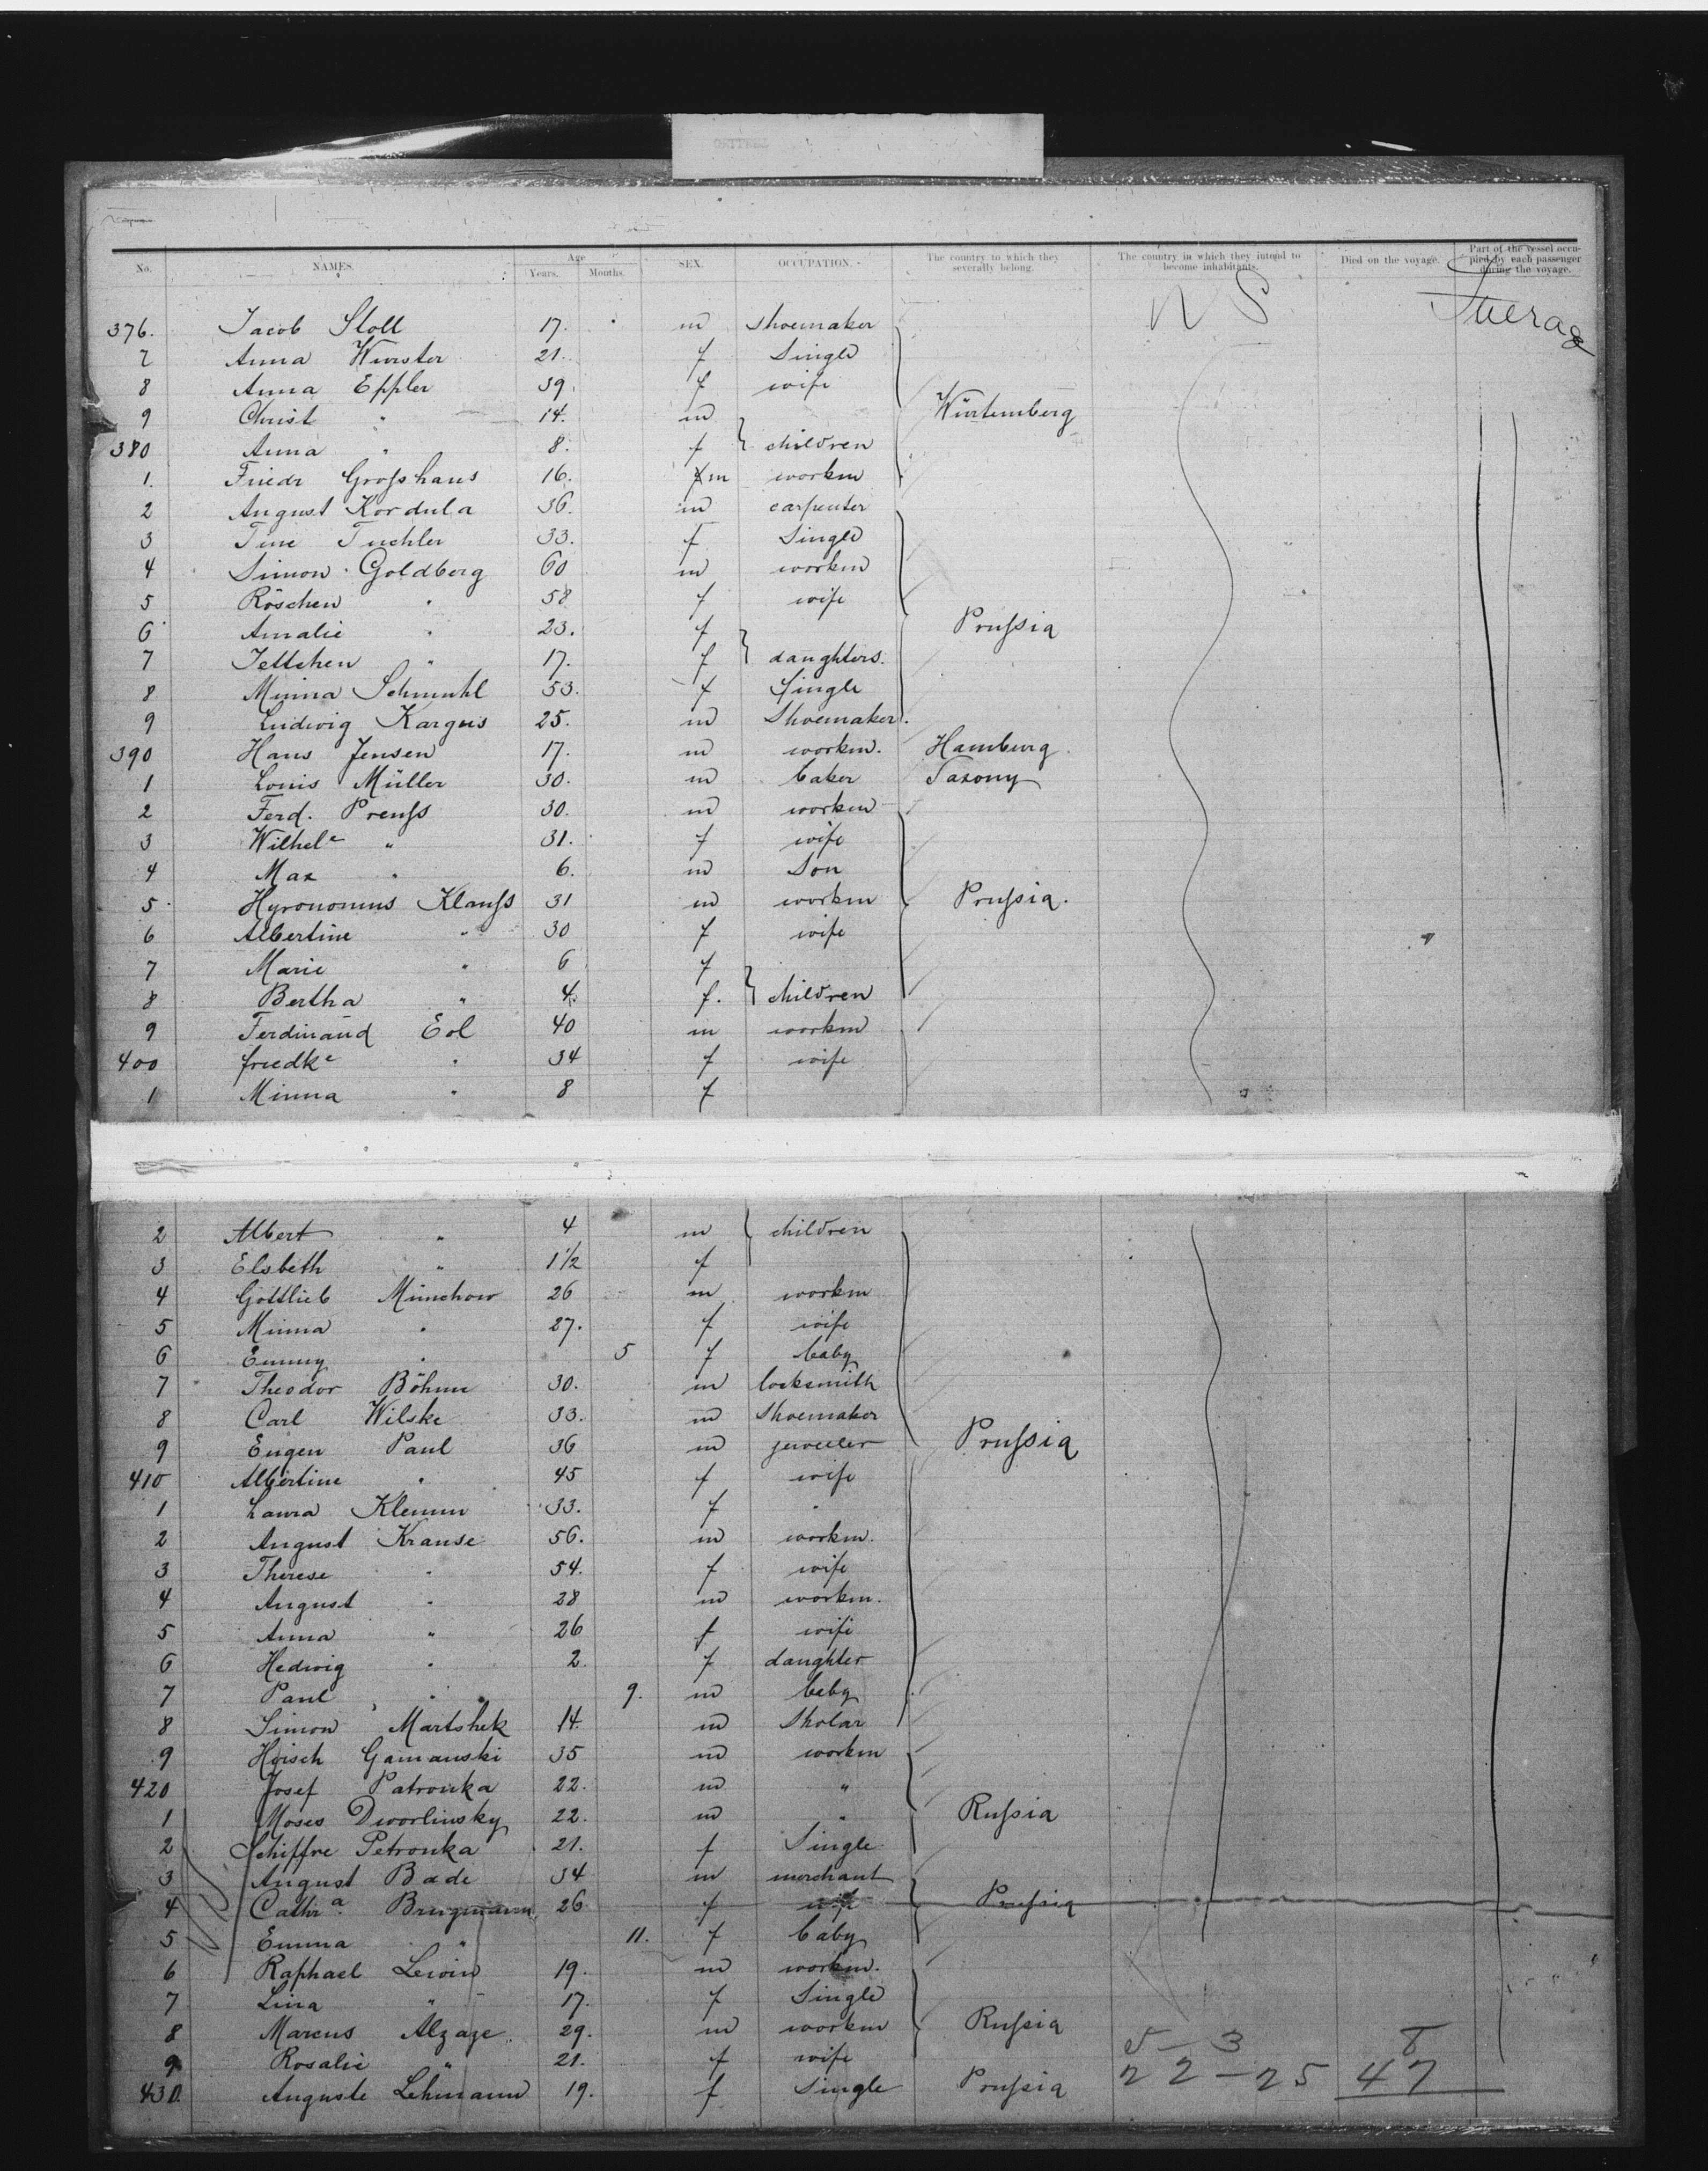 No. NAMES. Age Years. Months. SEX. OCCUPATION. The country to which they severally belong. The country in which they intend to become inhabitants. Died on the voyage. Part of the vessel occupied by each passenger during the voyage.
U S Steerage
376. Jacob Stoll 17. m shoemaker
7 Anna Wurster 21. f Single
8 Anna Eppler 39. f wife
9 Christ " 14. m Würtemberg
380 Anna " 8. f children
1. Friedr Großhans 16. m workm
2 August Kordula 36. m carpenter
3 Tine Tuchler 33. f Single
4 Simon Goldberg 60 m workm
5 Röschen " 58 f wife
6 Amalie " 23. f Prußia
7 Jettchen " 17. f daughters.
8 Minna Schmuhl 53. f Single
9 Ludwig Kargus 25. m Shoemaker
390 Hans Jensen 17. m workm. Hamburg
1 Louis Müller 30. m baker Saxony
2 Ferd. Preuß 30. m workm
3 Wilhele " 31. f wife
4 Max " 6. m Son
5 Hyronomus Klauß 31 m workm Prußia.
6 Albertine " 30 f wife
7 Marie " 6 f
8 Bertha " 4. f. children
9 Ferdinand Eol 40 m workm
400 friedke " 34 f wife
1 Minna " 8 f
2 Albert " 4 m children
3 Elsbeth " 1 1/2 f
4 Gottlieb Münchow 26 m workm
5 Minna " 27. f wife
6 Emmy " 5 f baby
7 Theodor Böhm 30. m locksmith
8 Carl Wilske 33. m Shoemaker
9 Eugen Paul 36 m jeweeler Prußia
410 Albertine " 45 f wife
1 Laura Klemm 33. f "
2 August Krause 56. m workm.
3 Therese " 54. f wife
4 August " 28 m workm.
5 Anna " 26 f wife
6 Hedwig " 2. f daughter
7 Paul " 9. m baby
8 Simon Martshek 14. m Sholar
9 Hirsch Gamanski 35 m workm
420 Josef Patronka 22. m "
1 Moses Dworlinsky 22. m " Rußia
2 Schiffre Petronka 21. f Single
3 August Bade 34 m merchant
4 Cathra Brugmann 26 f wife Prußia
5 Emma " 11. f baby
6 Raphael Lewin 19. m workm.
7 Lina " 17. f Single
8 Marcus Alzaze 29. m workm Rußia
9 Rosalie " 21. f wife
430. Auguste Lehmann 19. f Single Prußia
5 - 3 8
22 - 25 47